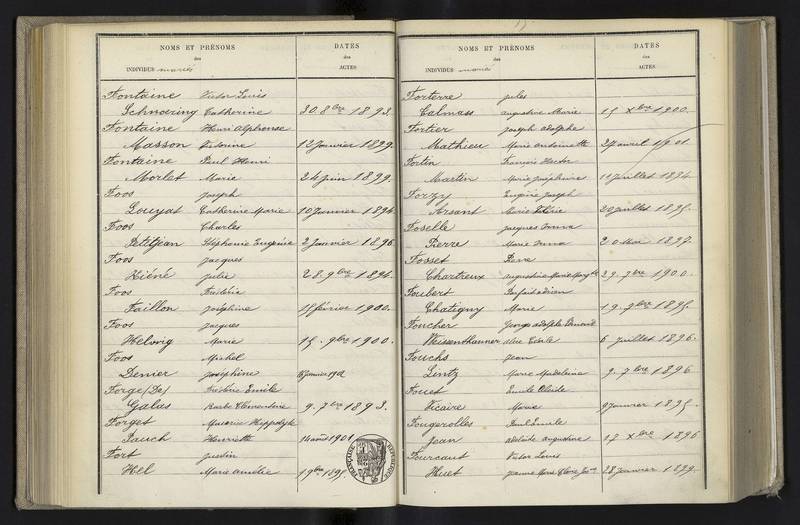 NOMS ET PRÉNOMS
des
INDIVIDUS mariés
DATES
des
ACTES
Fontaine Victor Louis
Schnoering Catherine 30. 8bre 1893.
Fontaine Henri Alphonse
Masson Victorine 12 Janvier 1899.
Fontaine Paul Henri
Morlet Marie 24 juin 1899.
Foos Joseph
Louyat Catherine Marie 10 Janvier 1894.
Foos Charles
Petitjean Stéphanie Eugénie 2 Janvier 1896
Foos Jacques
Hiéné Julie 28. 9bre 1894.
Foos Frédéric
Faillon Joséphine 15 février 1900.
Foos Jacques
Helwig Marie 15. 9bre 1900.
Foos Michel
Denier Joséphine Janvier
Forge (De) Frédéric Emile
Galas Barbe Clémentine 9. 7bre 1893.
Forget Hippolyte
Pauch Henriette 14 1901
Fort Justin
Hel Marie Amélie
NOMS ET PRÉNOMS
des
INDIVIDUS mariés
DATES
des
ACTES
Forterre Jules
Calmass Augustine Marie 15 Xbre 1900.
Fortier Joseph Adolphe
Mathieu Marie Antoinette 27 avril 1901.
Fortin François Hector
Martin Marie Joséphine Juillet 1894
Forzy Eugène Joseph
Arsant Marie 20 juillet 1895.
Foselle Jacques
Pierre Marie Mai 1897.
Fosset Pierre
Chartreux Augustine Marie 29. 7bre 1900.
Foubert
Chatigny Marie 19. 9bre 1895.
Foucher Georges Adolphe
Weissenthanner Cécile 6 juillet 1896.
Fouchs Jean
Lintz Marie Madeleine 9. 7bre 1896
Fouet Emile
Vicaire Marie 9 Janvier 1895.
Fougerolles Paul Emile
Jean Adélaïde Augustine 17 Xbre 1896
Fourcaut Victor Louis
Huet Jeanne Marie 28 Janvier 1899.